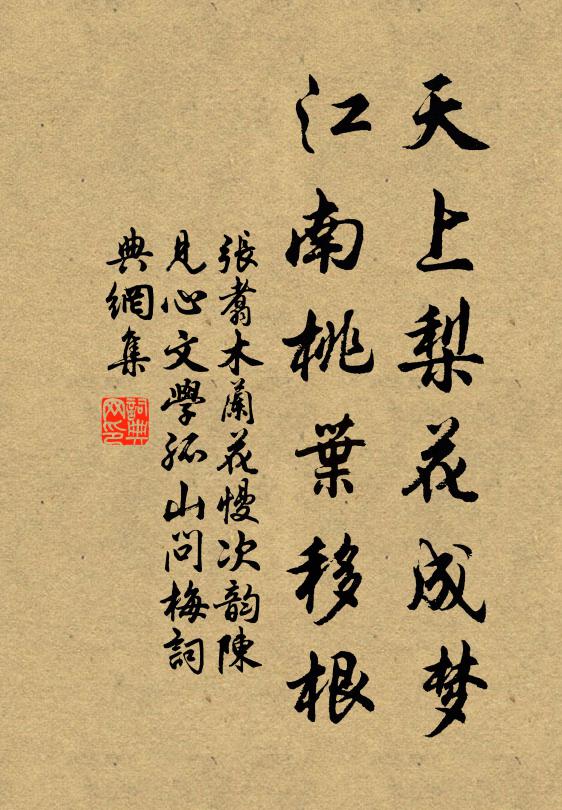 天上梨花成梦
江南桃葉移根
張翥木蘭花慢次韵陳
見心文學孤山問梅詞
典網集
詞典网印